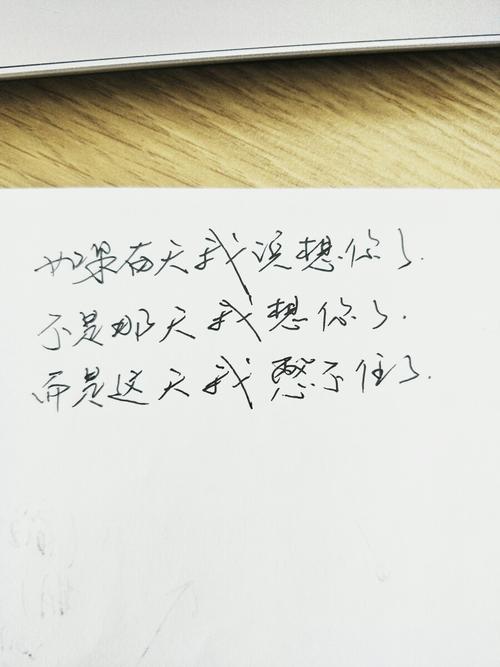 如果有天我说想你了.
不是那天我想你了.
而是这天我憋不住了.